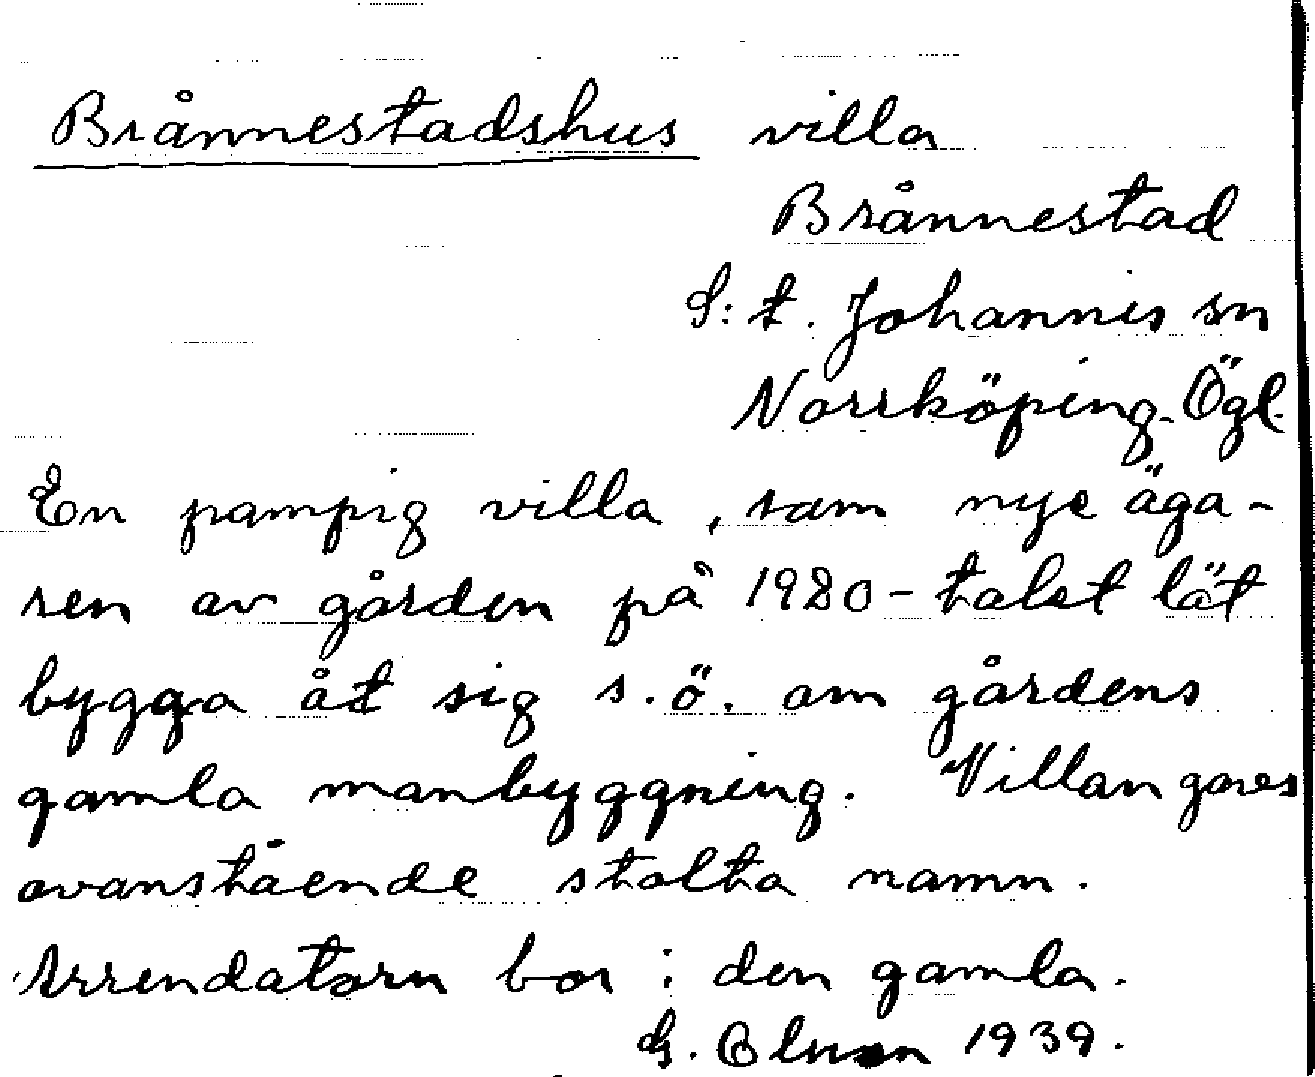 Brånnestadshus villa
Brånnestad
S:t. Johannis sn
Norrköping. Ögl.
En pampig villa, som nye äga-
ren av gården på 1920-talet lät
bygga åt sig s.ö. om gårdens
gamla manbyggning. Villan gaves
ovanstående stolta namn.
Arrendatorn bor i den gamla.
G. 1939.